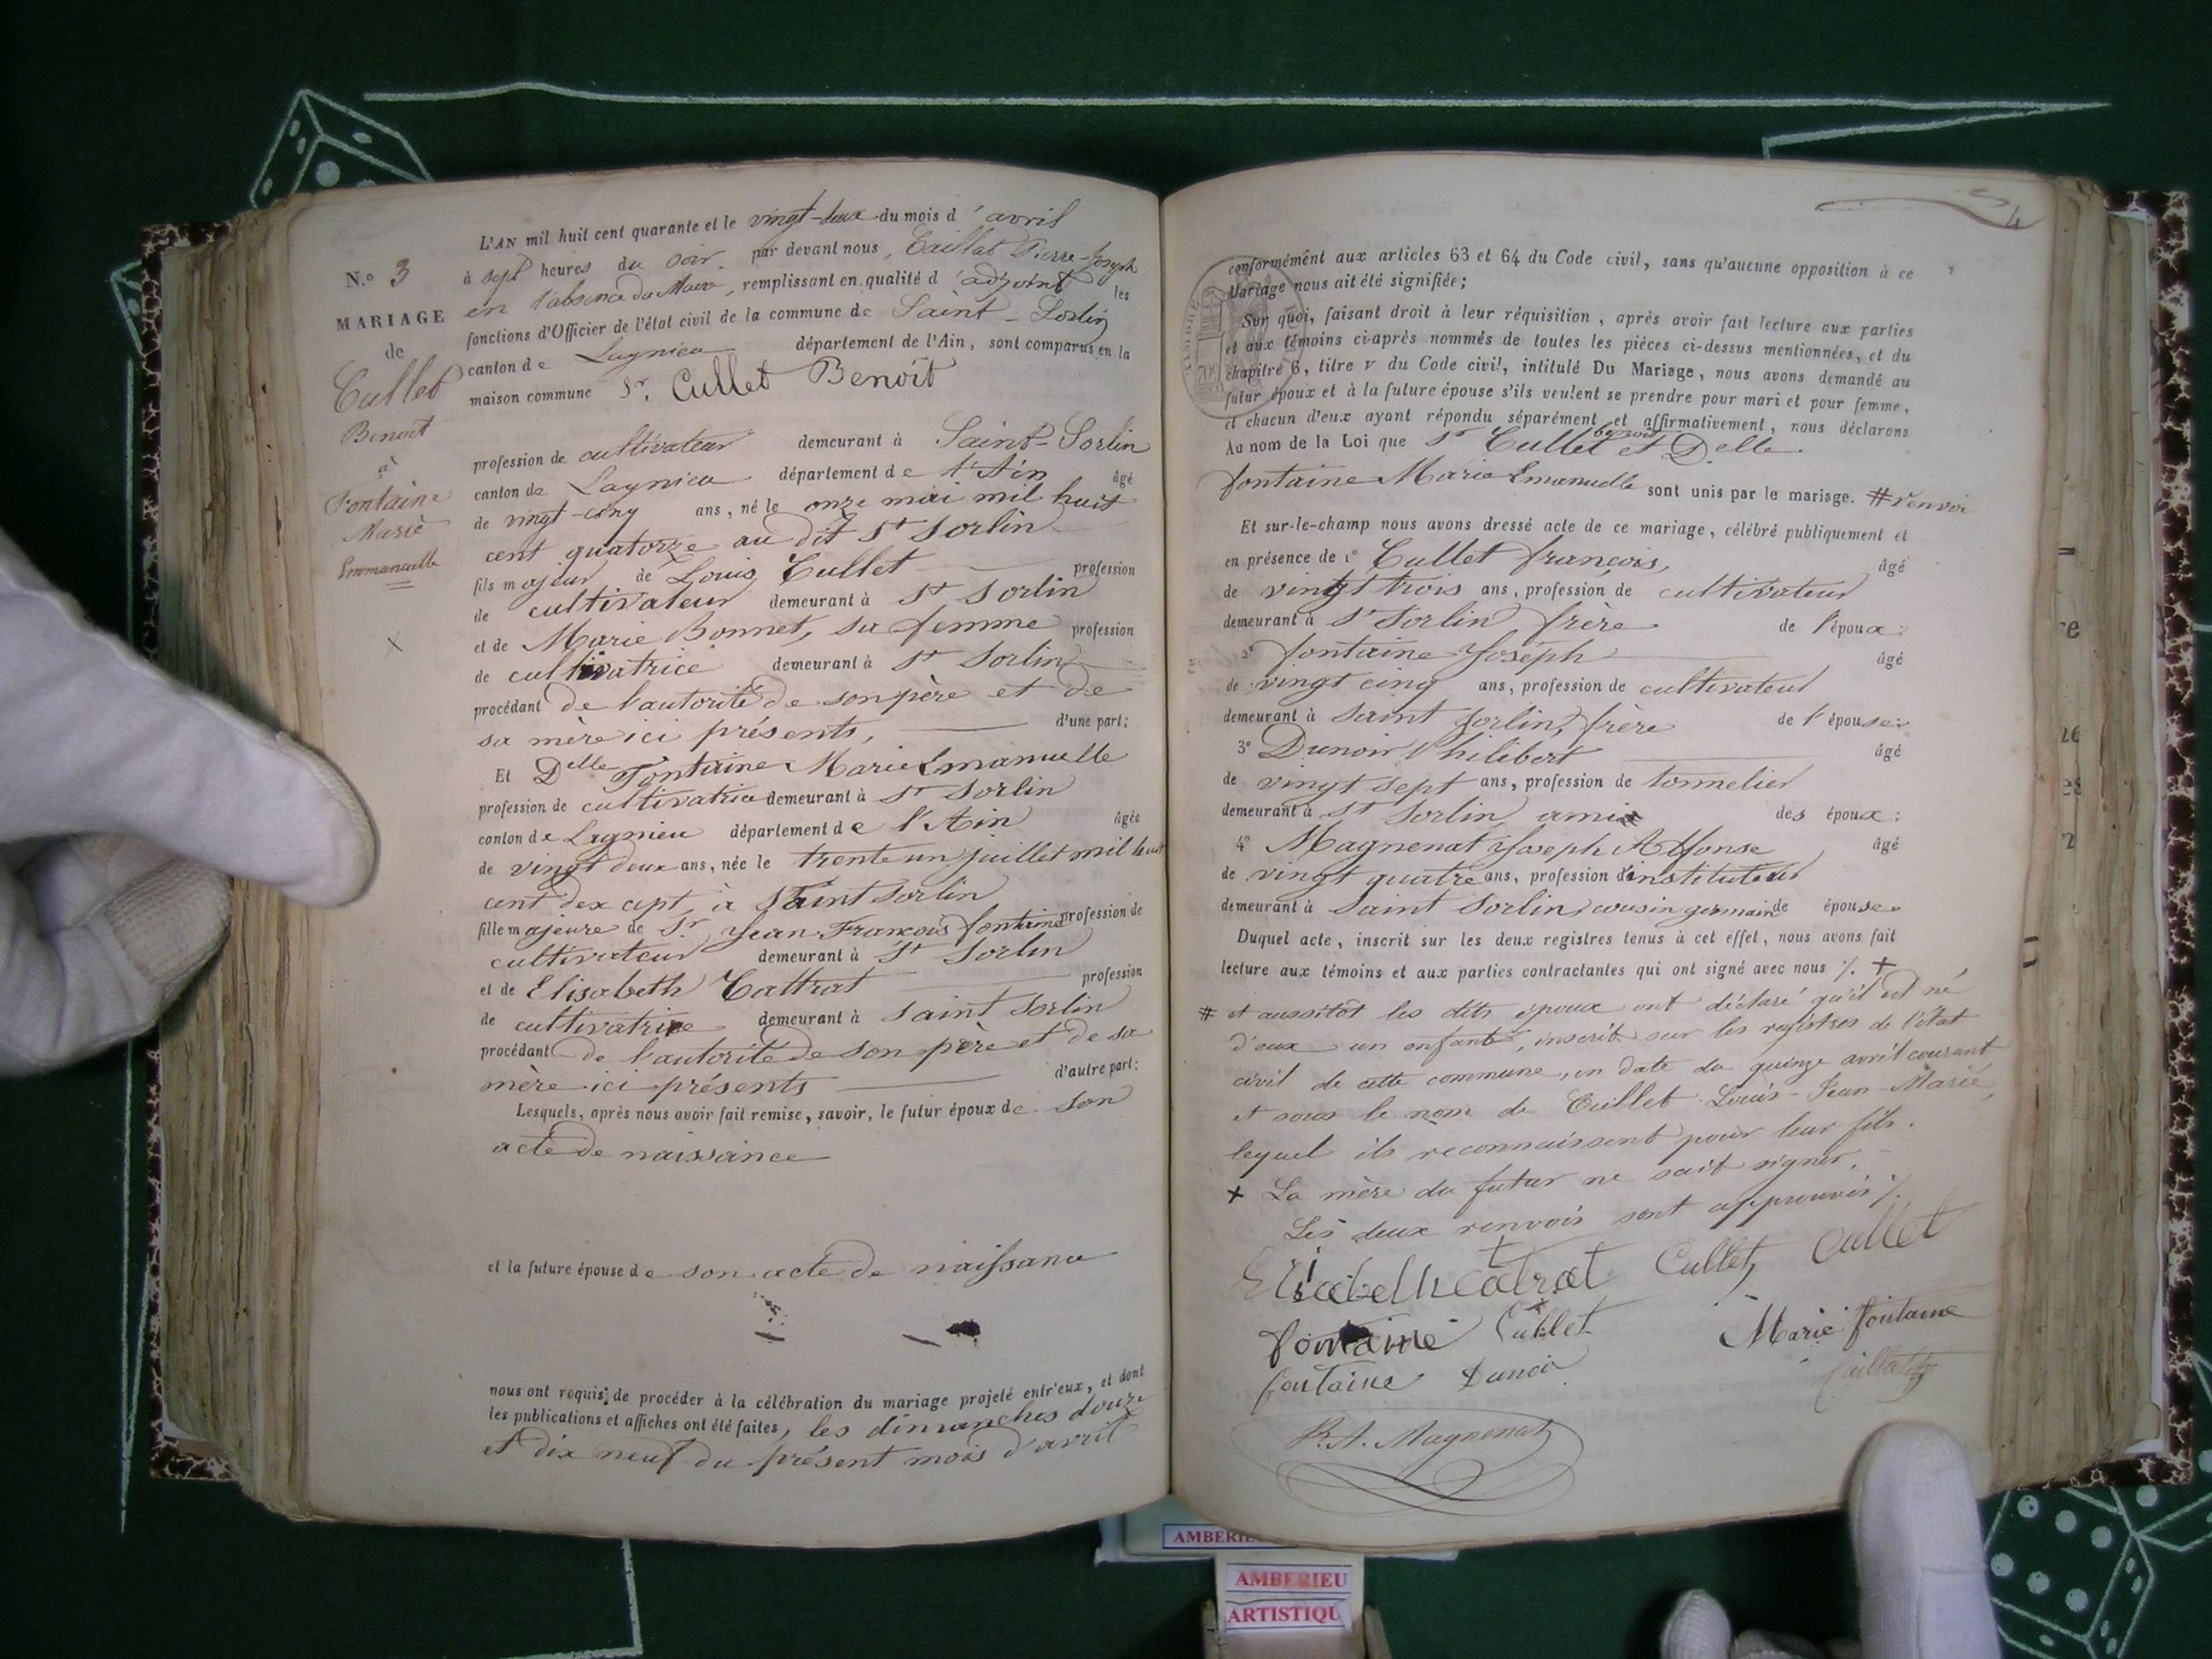 L'AN mil huit cent quarante et le vingt-deux du mois d'avril
à sept heures du soir, par devant nous, Caillat Pierre-Joseph
en l'absence du Maire, remplissant en qualité d'adjoint les
fonctions d'Officier de l'état civil de la commune de Saint-Sorlin
canton de Lagnieu département de l'Ain, sont comparus en la
maison commune Sr. Cullet Benoît
N.o 3
MARIAGE
de
Cullet
Benoit
à
Fontaine
Marie
Emmanuelle
profession de cultivateur demeurant à Saint-Sorlin
canton de Lagnieu département de l'Ain âgé
de vingt-cinq ans, né le onze mai mil huit
cent quatorze au dit St Sorlin
fils majeur de Louis Cullet profession
de cultivateur demeurant à St Sorlin
et de Marie Bonnet, sa femme profession
de cultivatrice demeurant à St Sorlin
procédant de l'autorité de son père et de
sa mère ici présents, d'une part;
Et Delle Fontaine Marie Emanuelle
profession de cultivatrice demeurant à St Sorlin
canton de Lagnieu département de l'Ain âgée
de vingt deux ans, née le trente un juillet mil huit
cent dex sept, à Saint Sorlin
fille majeure de Sr Jean François fontaine profession de
cultivateur demeurant à St Sorlin
et de Elisabeth Cattrat profession
de cultivatrice demeurant à Saint Sorlin
procédant de l'autorité de son père et de sa
mère ici présents d'autre part:
Lesquels, après nous avoir fait remise, savoir, le futur époux de son
acte de naissance
et la future épouse de son acte de naissance
nous ont requis de procéder à la célébration du mariage projeté entr'eux, et dont
les publications et affiches ont été faites, les dimanches douze
et dix neuf du présent mois d'avril
4
conformément aux articles 63 et 64 du Code civil, sans qu'aucune opposition à ce
Mariage nous ait été signifiée;
Sur quoi, faisant droit à leur réquisition, après avoir fait lecture aux parties
et aux témoins ci-après nommés de toutes les pièces ci-dessus mentionnées, et du
chapitre 6, titre v du Code civil, intitulé Du Mariage, nous avons demandé au
futur époux et à la future épouse s'ils veulent se prendre pour mari et pour femme,
et chacun d'eux ayant répondu séparément et affirmativement, nous déclarons
Au nom de la Loi que Sr Cullet benoit et Delle
fontaine Marie Emanuelle sont unis par le mariage. # renvoi
Et sur-le-champ nous avons dressé acte de ce mariage, célébré publiquement et
en présence de 1° Cullet françois, âgé
de vingt trois ans, profession de cultivateur
demeurant à St Sorlin frère de l'époux;
2° fontaine Joseph âgé
de vingt cinq ans, profession de cultivateur
demeurant à Saint Sorlin, frère de l'épouse;
3° Dunoir Philibert âgé
de vingt sept ans, profession de tonnelier
demeurant à St Sorlin ami des époux;
4° Magnenat Joseph Alfonse âgé
de vingt quatre ans, profession d'instituteur
demeurant à Saint Sorlin, cousin germain de épouse.
Duquel acte, inscrit sur les deux registres tenus à cet effet, nous avons fait
lecture aux témoins et aux parties contractantes qui ont signé avec nous ./. +
# et aussitôt les dits époux ont déclaré qu'il est né
d'eux un enfant, inscrit sur les registres de l'état
civil de cette commune, en date du quinze avril courant
et sous le nom de Cullet Louis-Jean-Marie,
lequel ils reconnaissent pour leur fils.
+ La mère du futur ne sait signer.
Les deux renvois sont approuvés ./.
Elisabeth Catrat Cullet Cullet
fontaine Cullet Marie fontaine
fontaine Dunoir Caillat
J. A. Magnenat
AMBERIEU
ARTISTIQU